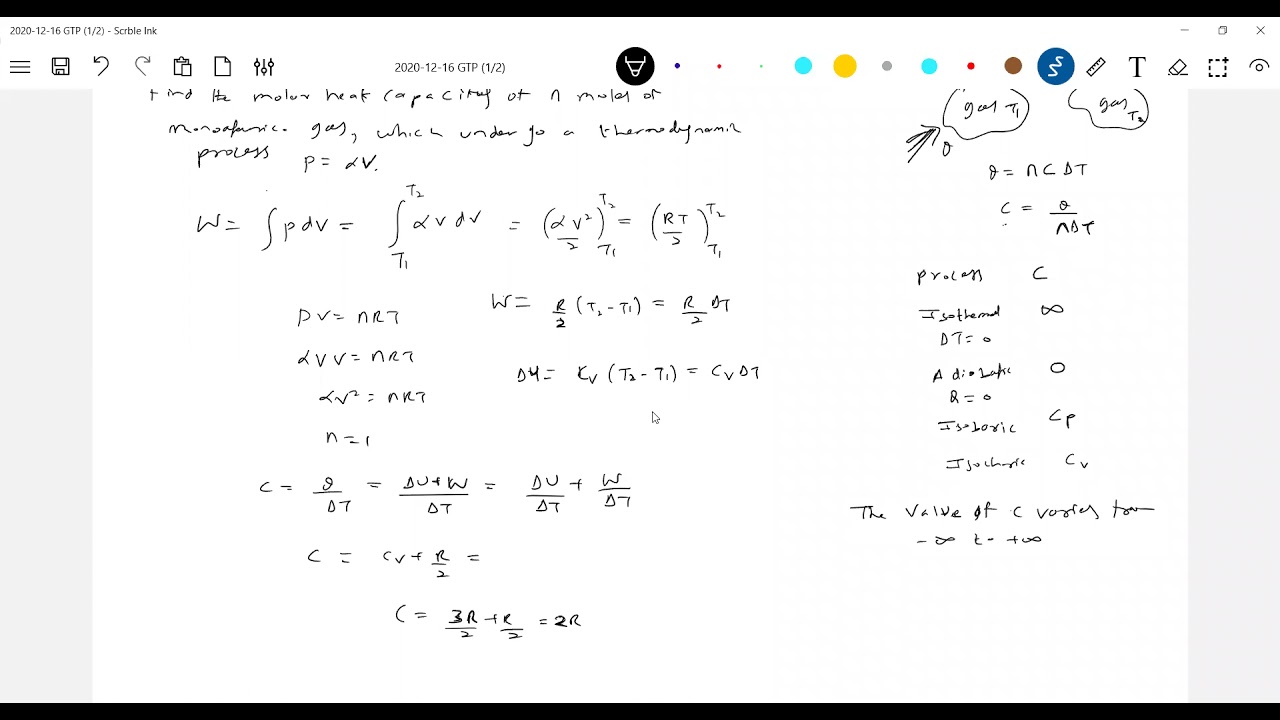 2020-12-16 GTP (1/2) - Scrble Ink
2020-12-16 GTP (1/2)
T
Find the molar heat capacity of n moles of
monoatomic gas, which undergo a thermodynamic
process P = αV.
W = ∫ p dv = ∫_{T1}^{T2} α v dv = (αv²/2)_{T1}^{T2} = (RT/2)_{T1}^{T2}
W = R/2 (T2 - T1) = R/2 ΔT
PV = nRT
αVV = nRT
ΔU = CV (T2 - T1) = CV ΔT
αV² = nRT
n = 1
C = Q/ΔT = (ΔU + W)/ΔT = ΔU/ΔT + W/ΔT
C = CV + R/2 =
C = 3R/2 + R/2 = 2R
gas T1
gas T2
Q
Q = nCΔT
C = Q/nΔT
process C
Isothermal ∞
ΔT = 0
Adiabatic 0
Q = 0
Isobaric Cp
Isochoric Cv
The value of C varies from
-∞ to +∞